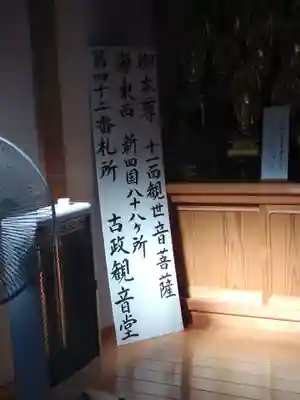 御本尊 十一面観世音菩薩
東西 新四国八十八ヶ所
第四十二番札所 古政観音堂